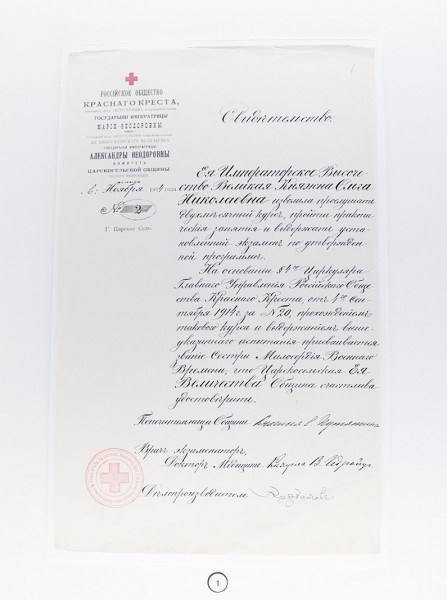 РОССІЙСКОЕ ОБЩЕСТВО
КРАСНАГО КРЕСТА,
ГОСУДАРЫНИ ИМПЕРАТРИЦЫ
МАРІИ ѲЕОДОРОВНЫ.
АЛЕКСАНДРЫ ѲЕОДОРОВНЫ
КОМИТЕТЪ
ЦАРСКОСЕЛЬСКОЙ ОБЩИНЫ
6. Ноября 1914 года.
№ 2
Г. Царское Село.
Свидѣтельство.
Ея Императорское Высоче-
ство Великая Княжна Ольга
Николаевна изволила прослушать
двухмѣсячный курсъ, пройти практи-
ческія занятія и выдержать уста-
новленный экзаменъ по утвержден-
ной программѣ.
На основаніи § 4го Циркуляра
Главнаго Управленія Россійскаго Обще-
ства Краснаго Креста, отъ 4го Сен-
тября 1914 г. за № 20, прохожденіемъ
таковаго курса и выдержаніемъ выше-
указаннаго испытанія присваивается
званіе Сестры Милосердія Военнаго
Времени, что Царскосельская Ея
Величества Община счастлива
удостовѣрить.
Попечительница Общины
Врачъ экзаменаторъ,
Докторъ Медицины Княжна В. Гедройцъ
Дѣлопроизводитель
1